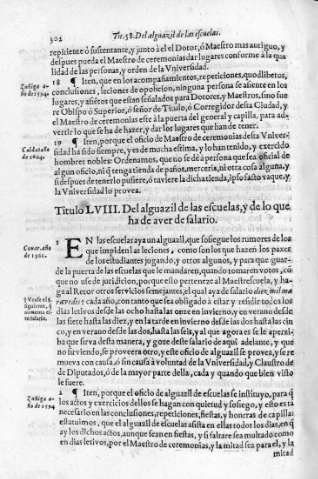 302 Tit.58. Del alguazil de las escuelas.
repitiente ò sustentante, y junto à el el Dotor, ò Maestro mas antiguo, y
despues pueda el Maestro de ceremonias dar lugares conforme à la qua
lidad de las personas, y orden de la Vniversidad.
Zuñiga a-
ño de 1594.
18 ¶ Iten, que en los acompañamientos, repeticiones, quodlibetos,
conclusiones, leciones de oposicion, ninguna persona se assiente en los
lugares, y assietos que estan señalados para Dotores, y Maestros, sino fue
re Obispo ò Superior, ò señor de Titulo, ò Corregidor desta Ciudad, y
el Maestro de ceremonias este à la puerta del general y capilla, para ad-
vertir lo que se ha de hazer, y dar los lugares que han de tener.
Caldas año
de 1604.
19 ¶ Iten, porque el oficio de Maestro de ceremonias desta Vniver-
sidad ha sido siempre, y es de mucha estima, y lo han tenido, y exercido
hombres nobles: Ordenamos, que no se dè à persona que sea oficial de
algun oficio, ni q tenga tienda de paños, merceria, ni otra cosa alguna, y
si despues de tenerlo pusiere, ò tuviere la dicha tienda, ipso facto vaque, y
la Vniversidad lo provea.
Titulo LVIII. Del alguazil de las escuelas, y de lo que
ha de aver de salario.
Covar. año
de 1561.
1 EN las escuelas aya un alguazil, que sosiegue los rumores de los
que impiden las leciones, como son los que hazen los pajes
de los estudiantes jugando, y otros algunos, y para que guar-
de la puerta de las escuelas que le mandaren, quando tomaren votos, cõ
que no use de jurisdicion, porque ello pertenece al Maestrescuela, y ha-
ga al Retor otros servicios semejantes, el qual aya de salario diez mil ma
ravedis cada año, con tanto que sea obligado à estar y residir todos los
dias letivos desde las ocho hasta las onze en invierno, y en verano desde
las siete hasta las diez, y en la tarde en invierno desde las dos hasta las cin
co, y en verano desde las dos, hasta las seis, y al que agora es se le aperci-
ba que sirva desta manera, y gote deste salario de aqui adelante, y que
no sirviendo, se proveera otro, y este oficio de alguazil se provea, y se re
mueva con causa, ò sin causa à voluntad de la Vniversidad, y Claustro de
de Diputados, ò de la mayor parte della, cada y quando que bien visto
le fuere.
Zuñiga a-
ño de 1594.
2 ¶ Iten, porque el oficio de alguazil de escuelas se instituyo, para q
los actos y exercicios dellos se hagan con quietud y sosiego, y esto es ta
necesario en las conclusiones, repeticiones, fiestas, y honras de capillas
estatuimos, que el alguazil de escuelas asista en ellas todos los dias, en q
ay los dichos actos, aunque sean en fiestas, y si faltare sea multado como
en dias letivos, por el Maestro de ceremonias, y la mitad sea para el, y la
mitad